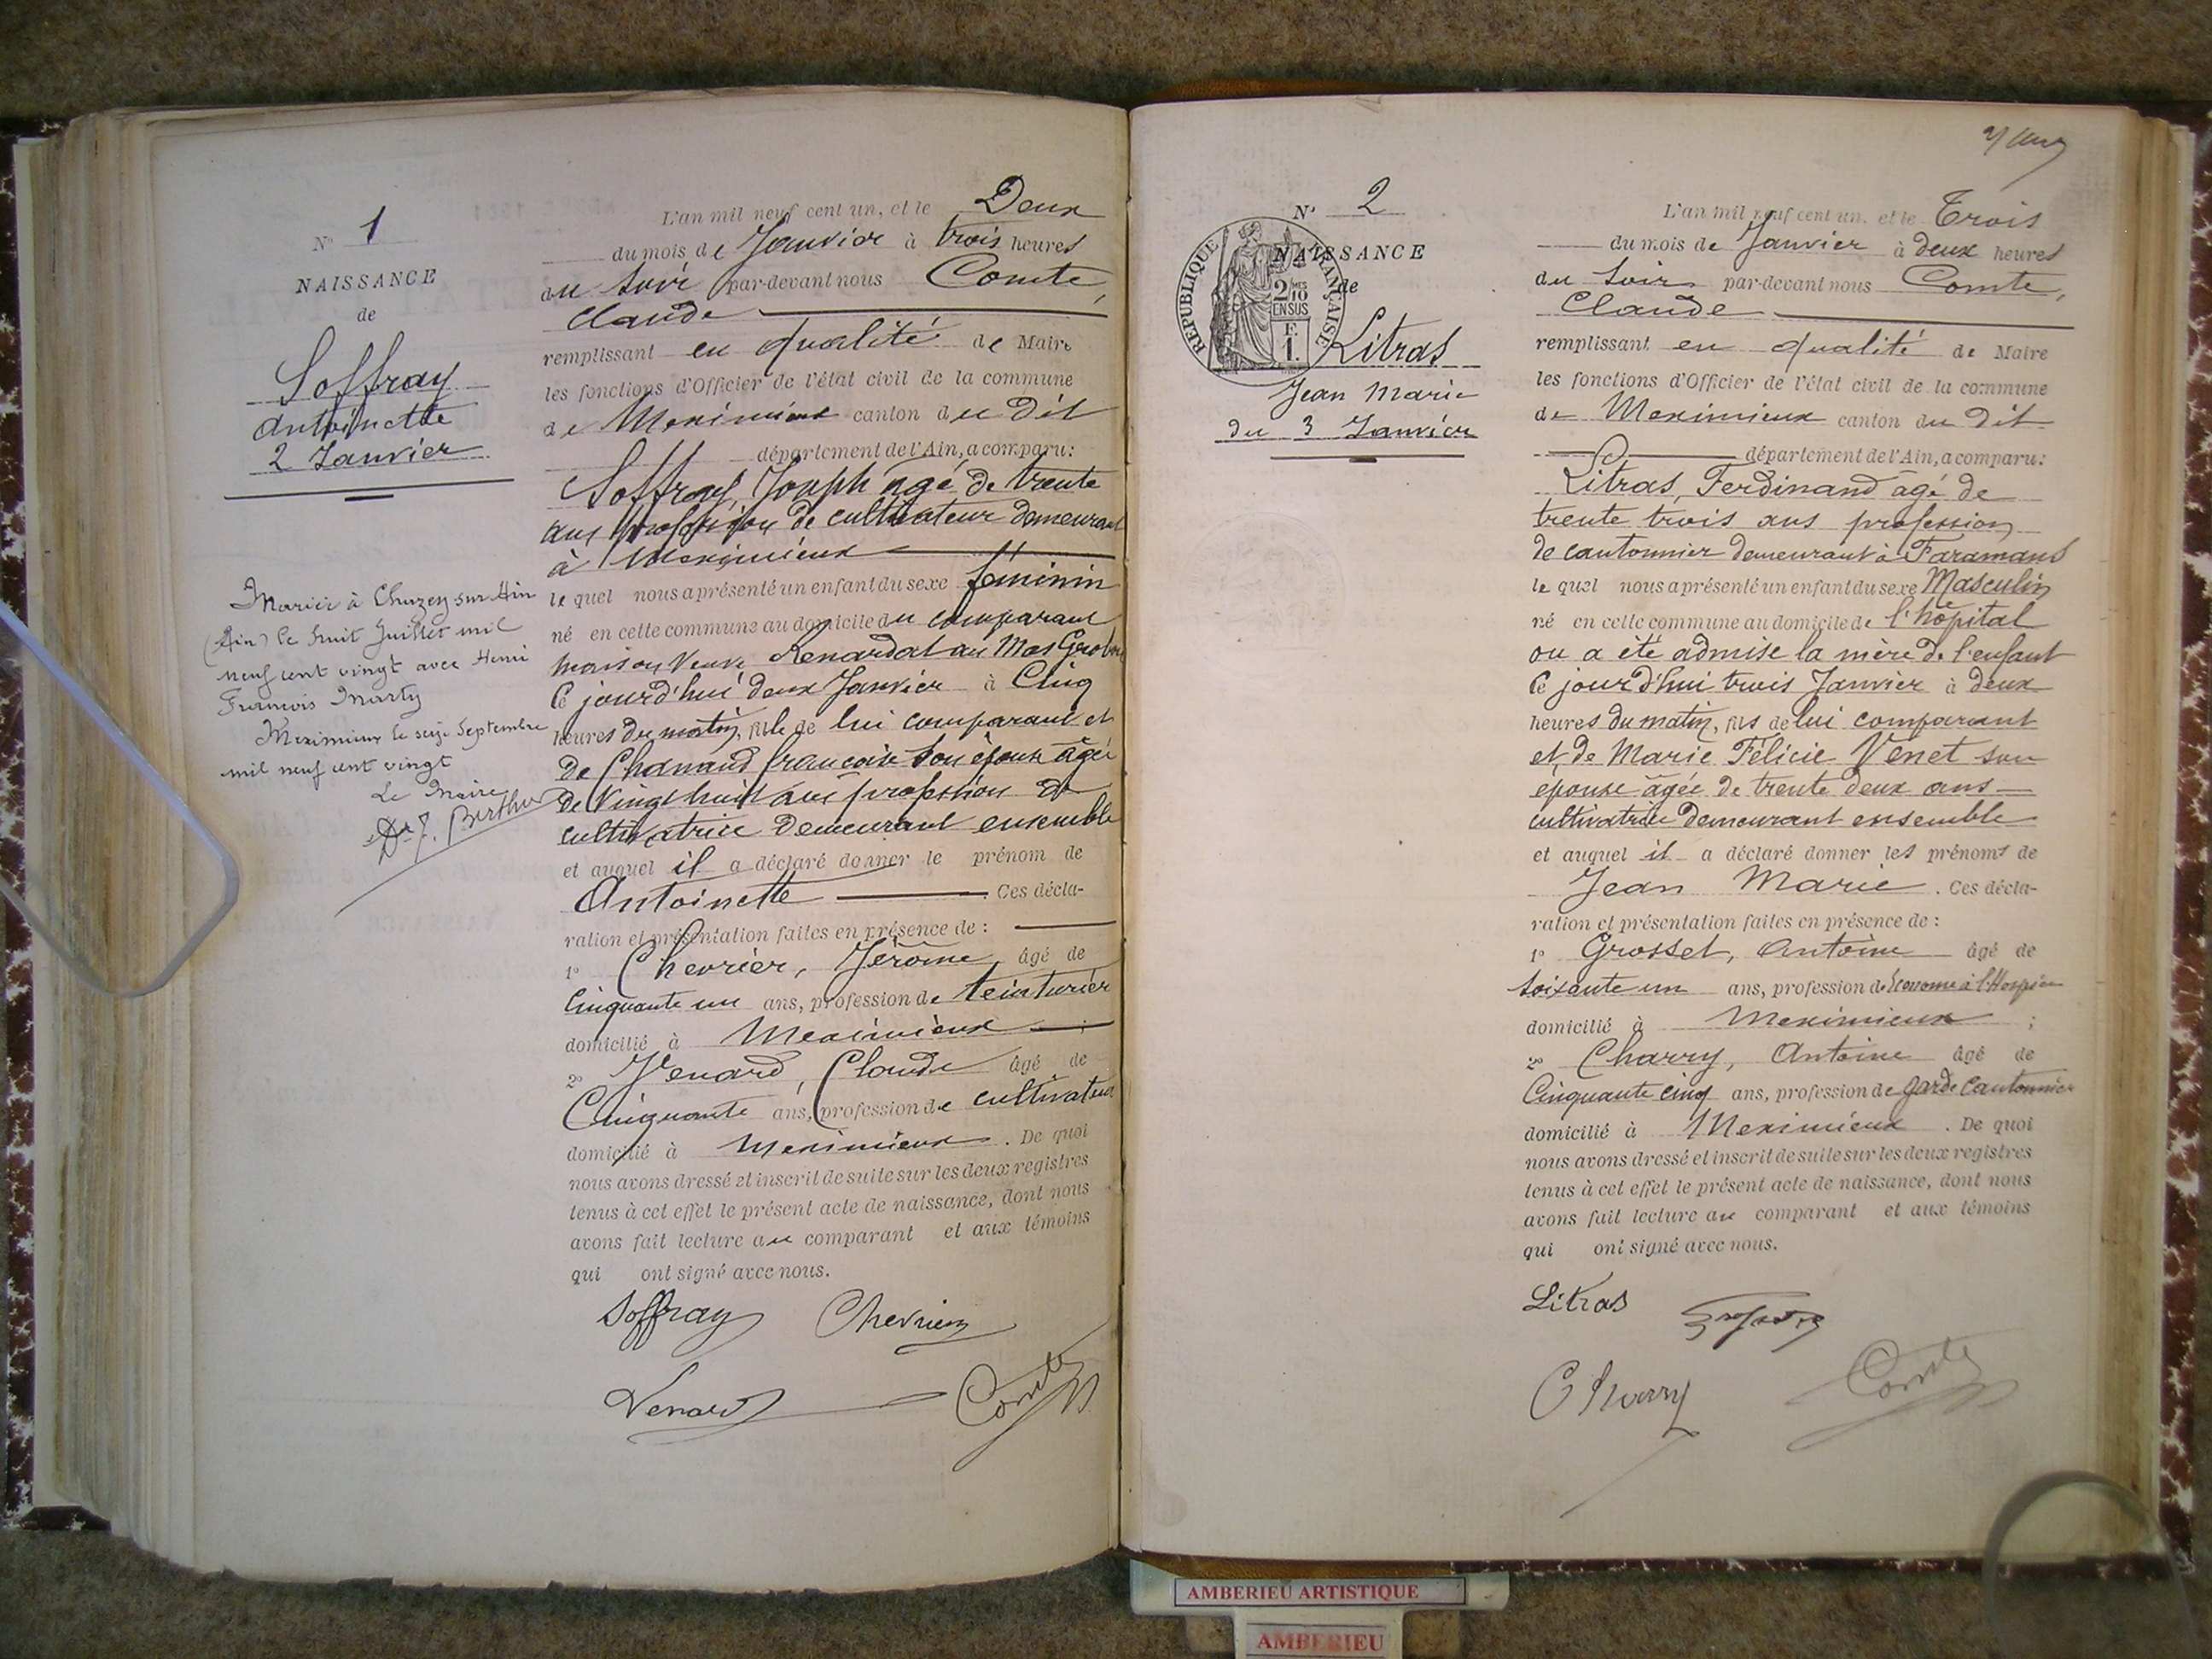 N° 1
NAISSANCE
de
Soffray
Antoinette
2 Janvier
Mariée à Chazey sur Ain
(Ain) le huit Juillet mil
neuf cent vingt avec Henri
François Marty
Meximieux le seize Septembre
mil neuf cent vingt
Le Maire
Dr J. Berthier
L'an mil neuf cent un, et le Deux
du mois de Janvier à trois heures
du soir par-devant nous Comte,
Claude
remplissant en qualité de Maire
les fonctions d'Officier de l'état civil de la commune
de Meximieux canton du dit
département de l'Ain, a comparu:
Soffray, Joseph âgé de trente
ans profession de cultivateur demeurant
à Meximieux
le quel nous a présenté un enfant du sexe féminin
né en cette commune au domicile du comparant
maison Veuve Renardat au Mas
Ce jourd'hui deux Janvier à Cinq
heures du matin, fille de lui comparant et
de Chanand françoise son épouse âgée
de Vingt huit ans profession de
cultivatrice demeurant ensemble
et auquel il a déclaré donner le prénom de
Antoinette . Ces décla-
ration et présentation faites en présence de :
1° Chevrier, Jérôme, âgé de
Cinquante un ans, profession de teinturier
domicilié à Meximieux ;
2° Venard, Claude âgé de
Cinquante ans, profession de cultivateur
domicilié à Meximieux . De quoi
nous avons dressé et inscrit de suite sur les deux registres
tenus à cet effet le présent acte de naissance, dont nous
avons fait lecture au comparant et aux témoins
qui ont signé avec nous.
Soffray Chevrier
Venard Comte
N° 2
NAISSANCE
de
RÉPUBLIQUE FRANÇAISE
2/10 MES
EN SUS
F.
1.
Litras
Jean Marie
du 3 Janvier
L'an mil neuf cent un, et le Trois
du mois de Janvier à deux heures
du soir par-devant nous Comte,
Claude
remplissant en qualité de Maire
les fonctions d'Officier de l'état civil de la commune
de Meximieux canton du dit
département de l'Ain, a comparu:
Litras, Ferdinand âgé de
trente trois ans profession
de cantonnier demeurant à Faramans
le quel nous a présenté un enfant du sexe Masculin
né en cette commune au domicile de l'hôpital
ou a été admise la mère de l'enfant
Ce jourd'hui trois Janvier à deux
heures du matin, fils de lui comparant
et de Marie Félicie Venet son
épouse âgée de trente deux ans
cultivatrice demeurant ensemble
et auquel il a déclaré donner les prénoms de
Jean Marie . Ces décla-
ration et présentation faites en présence de :
1° Grosset, Antoine âgé de
soixante un ans, profession de Econome à l'Hospice
domicilié à Meximieux ;
2° Charry, Antoine âgé de
Cinquante cinq ans, profession de garde Cantonnier
domicilié à Meximieux . De quoi
nous avons dressé et inscrit de suite sur les deux registres
tenus à cet effet le présent acte de naissance, dont nous
avons fait lecture au comparant et aux témoins
qui ont signé avec nous.
Litras
Charry Comte
AMBERIEU ARTISTIQUE
AMBERIEU